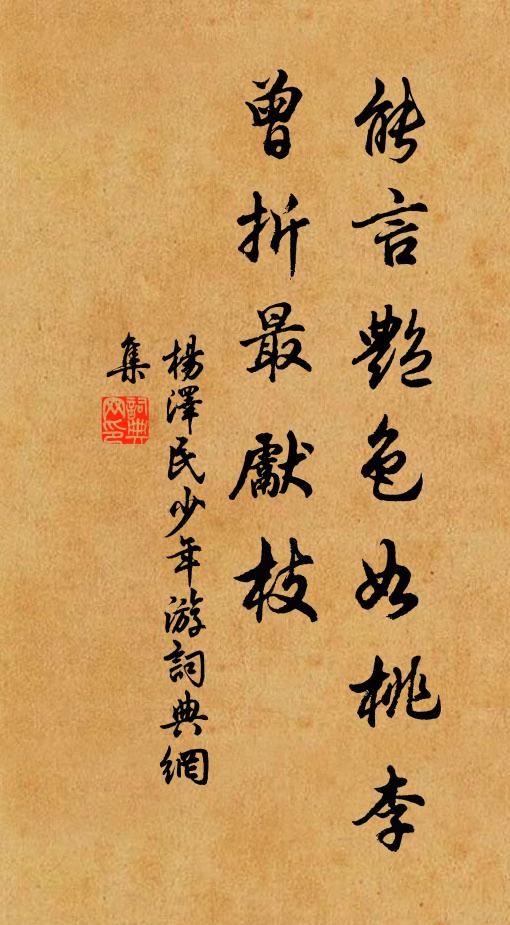 能言艷色如桃李
曾折最獻枝
楊澤民少年游詞典網
集
詞典網印